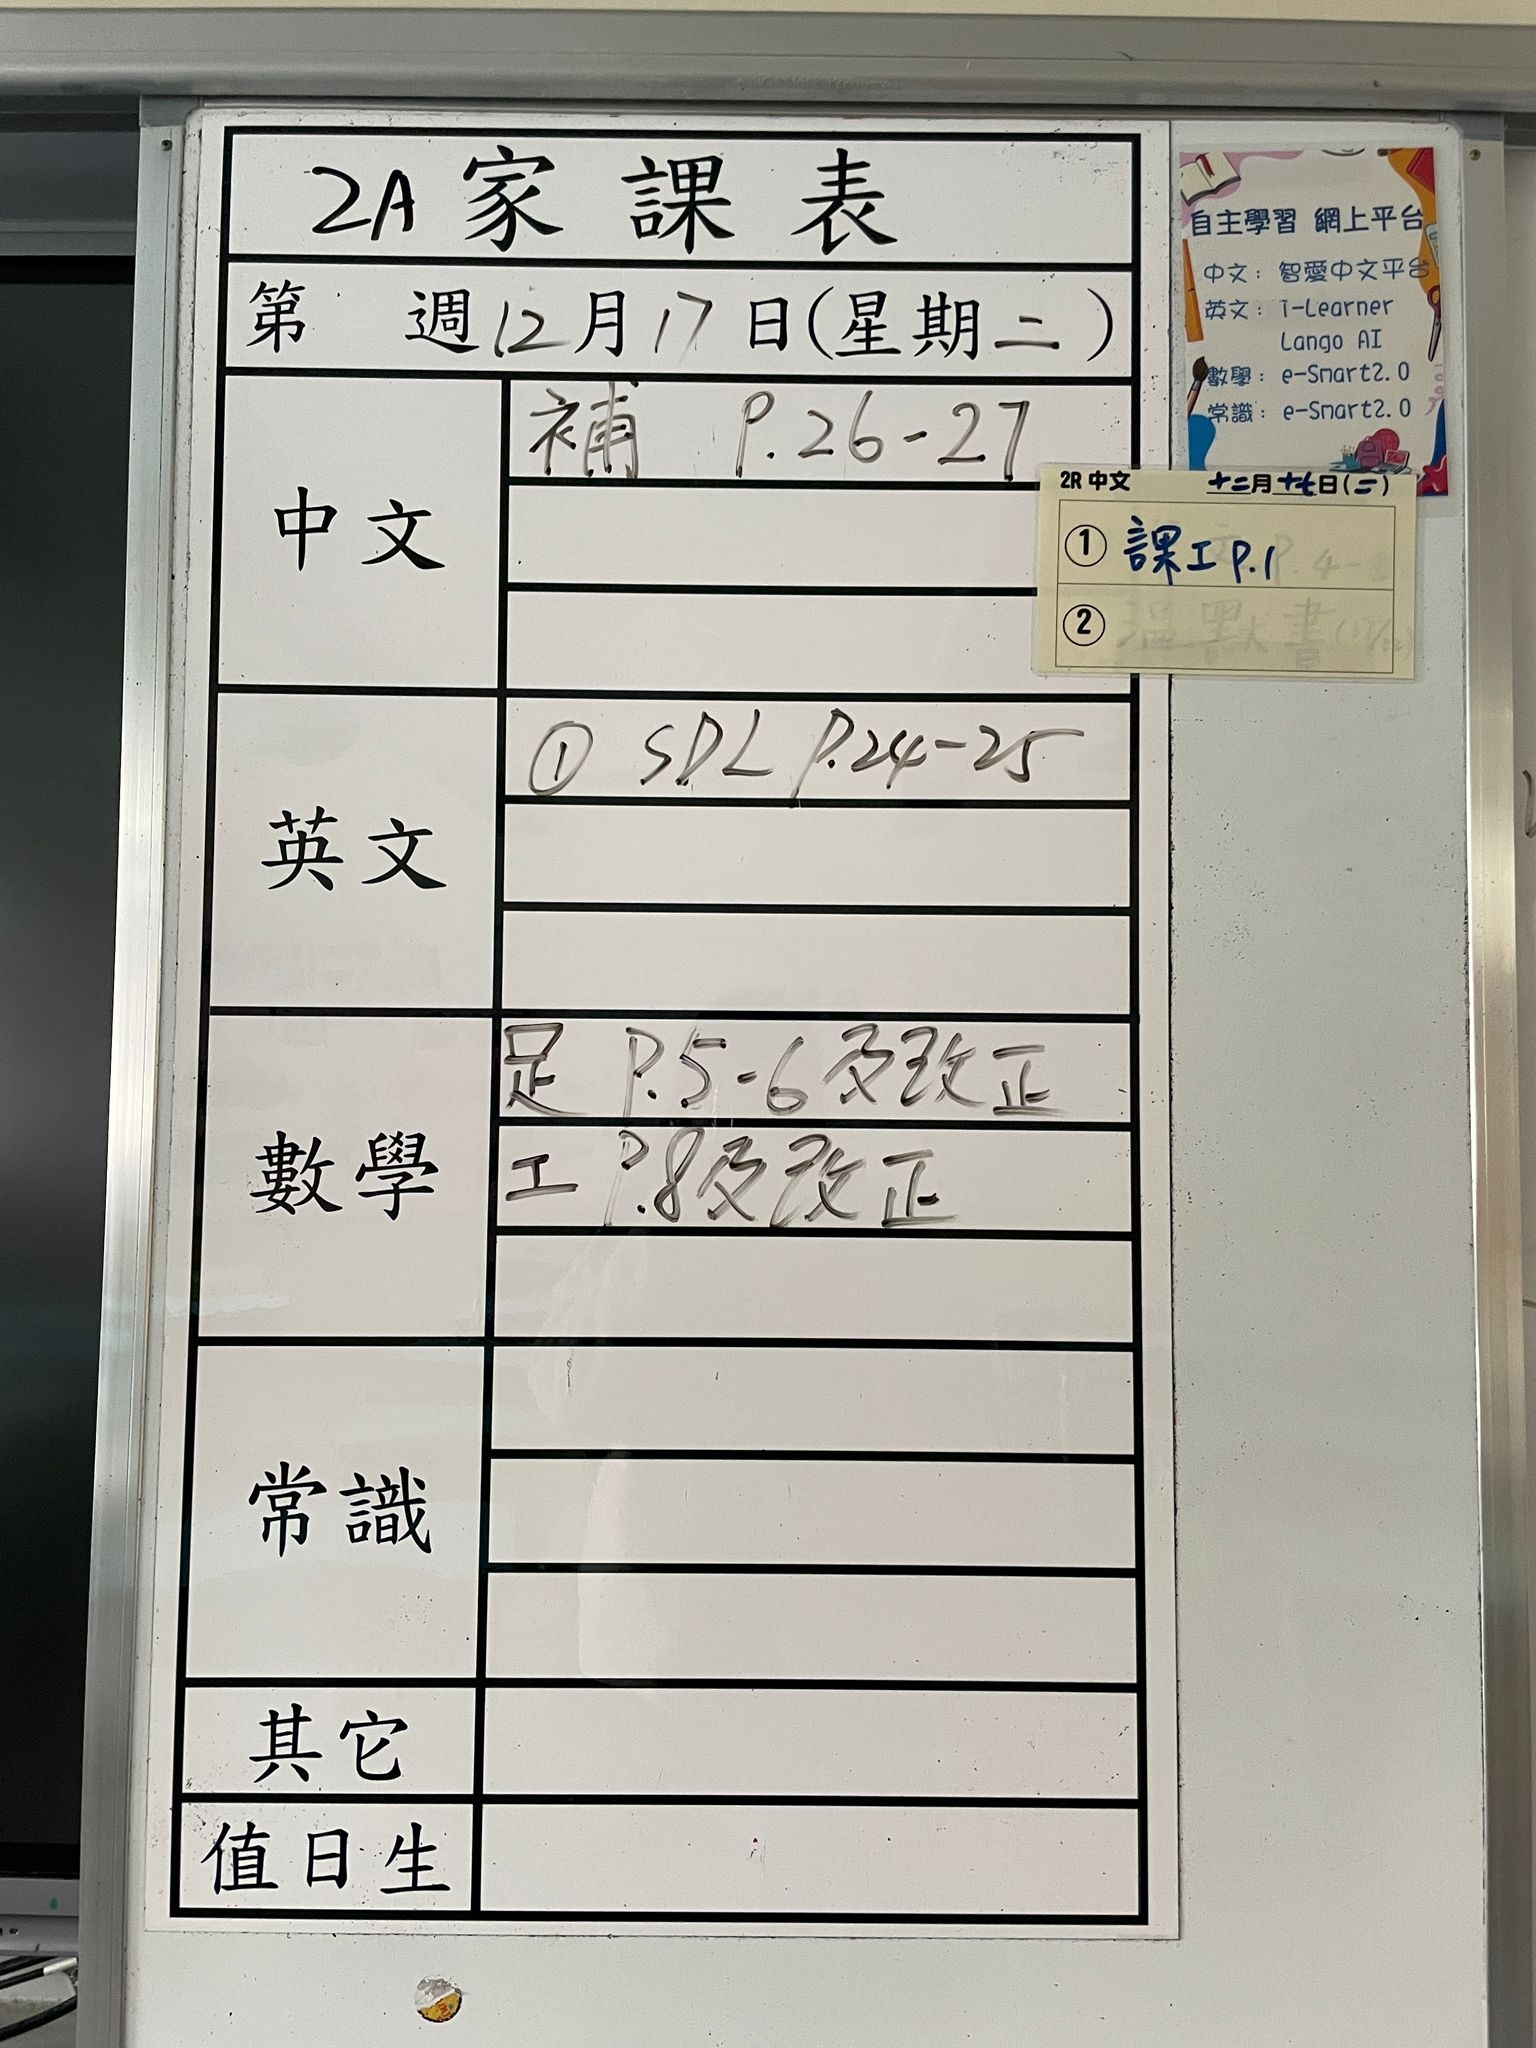 2A 家課表
第 週 12月17日(星期二)
中文
補 P.26-27
英文
① SDL P.24-25
數學
足 P.5-6及改正
工 P.8及改正
常識
其它
值日生
自主學習 網上平台
中文：智愛中文平台
英文：i-Learner
Lango AI
數學：e-Smart2.0
常識：e-Smart2.0
2R 中文 十二月十七日(二)
① 課工 P.1
②